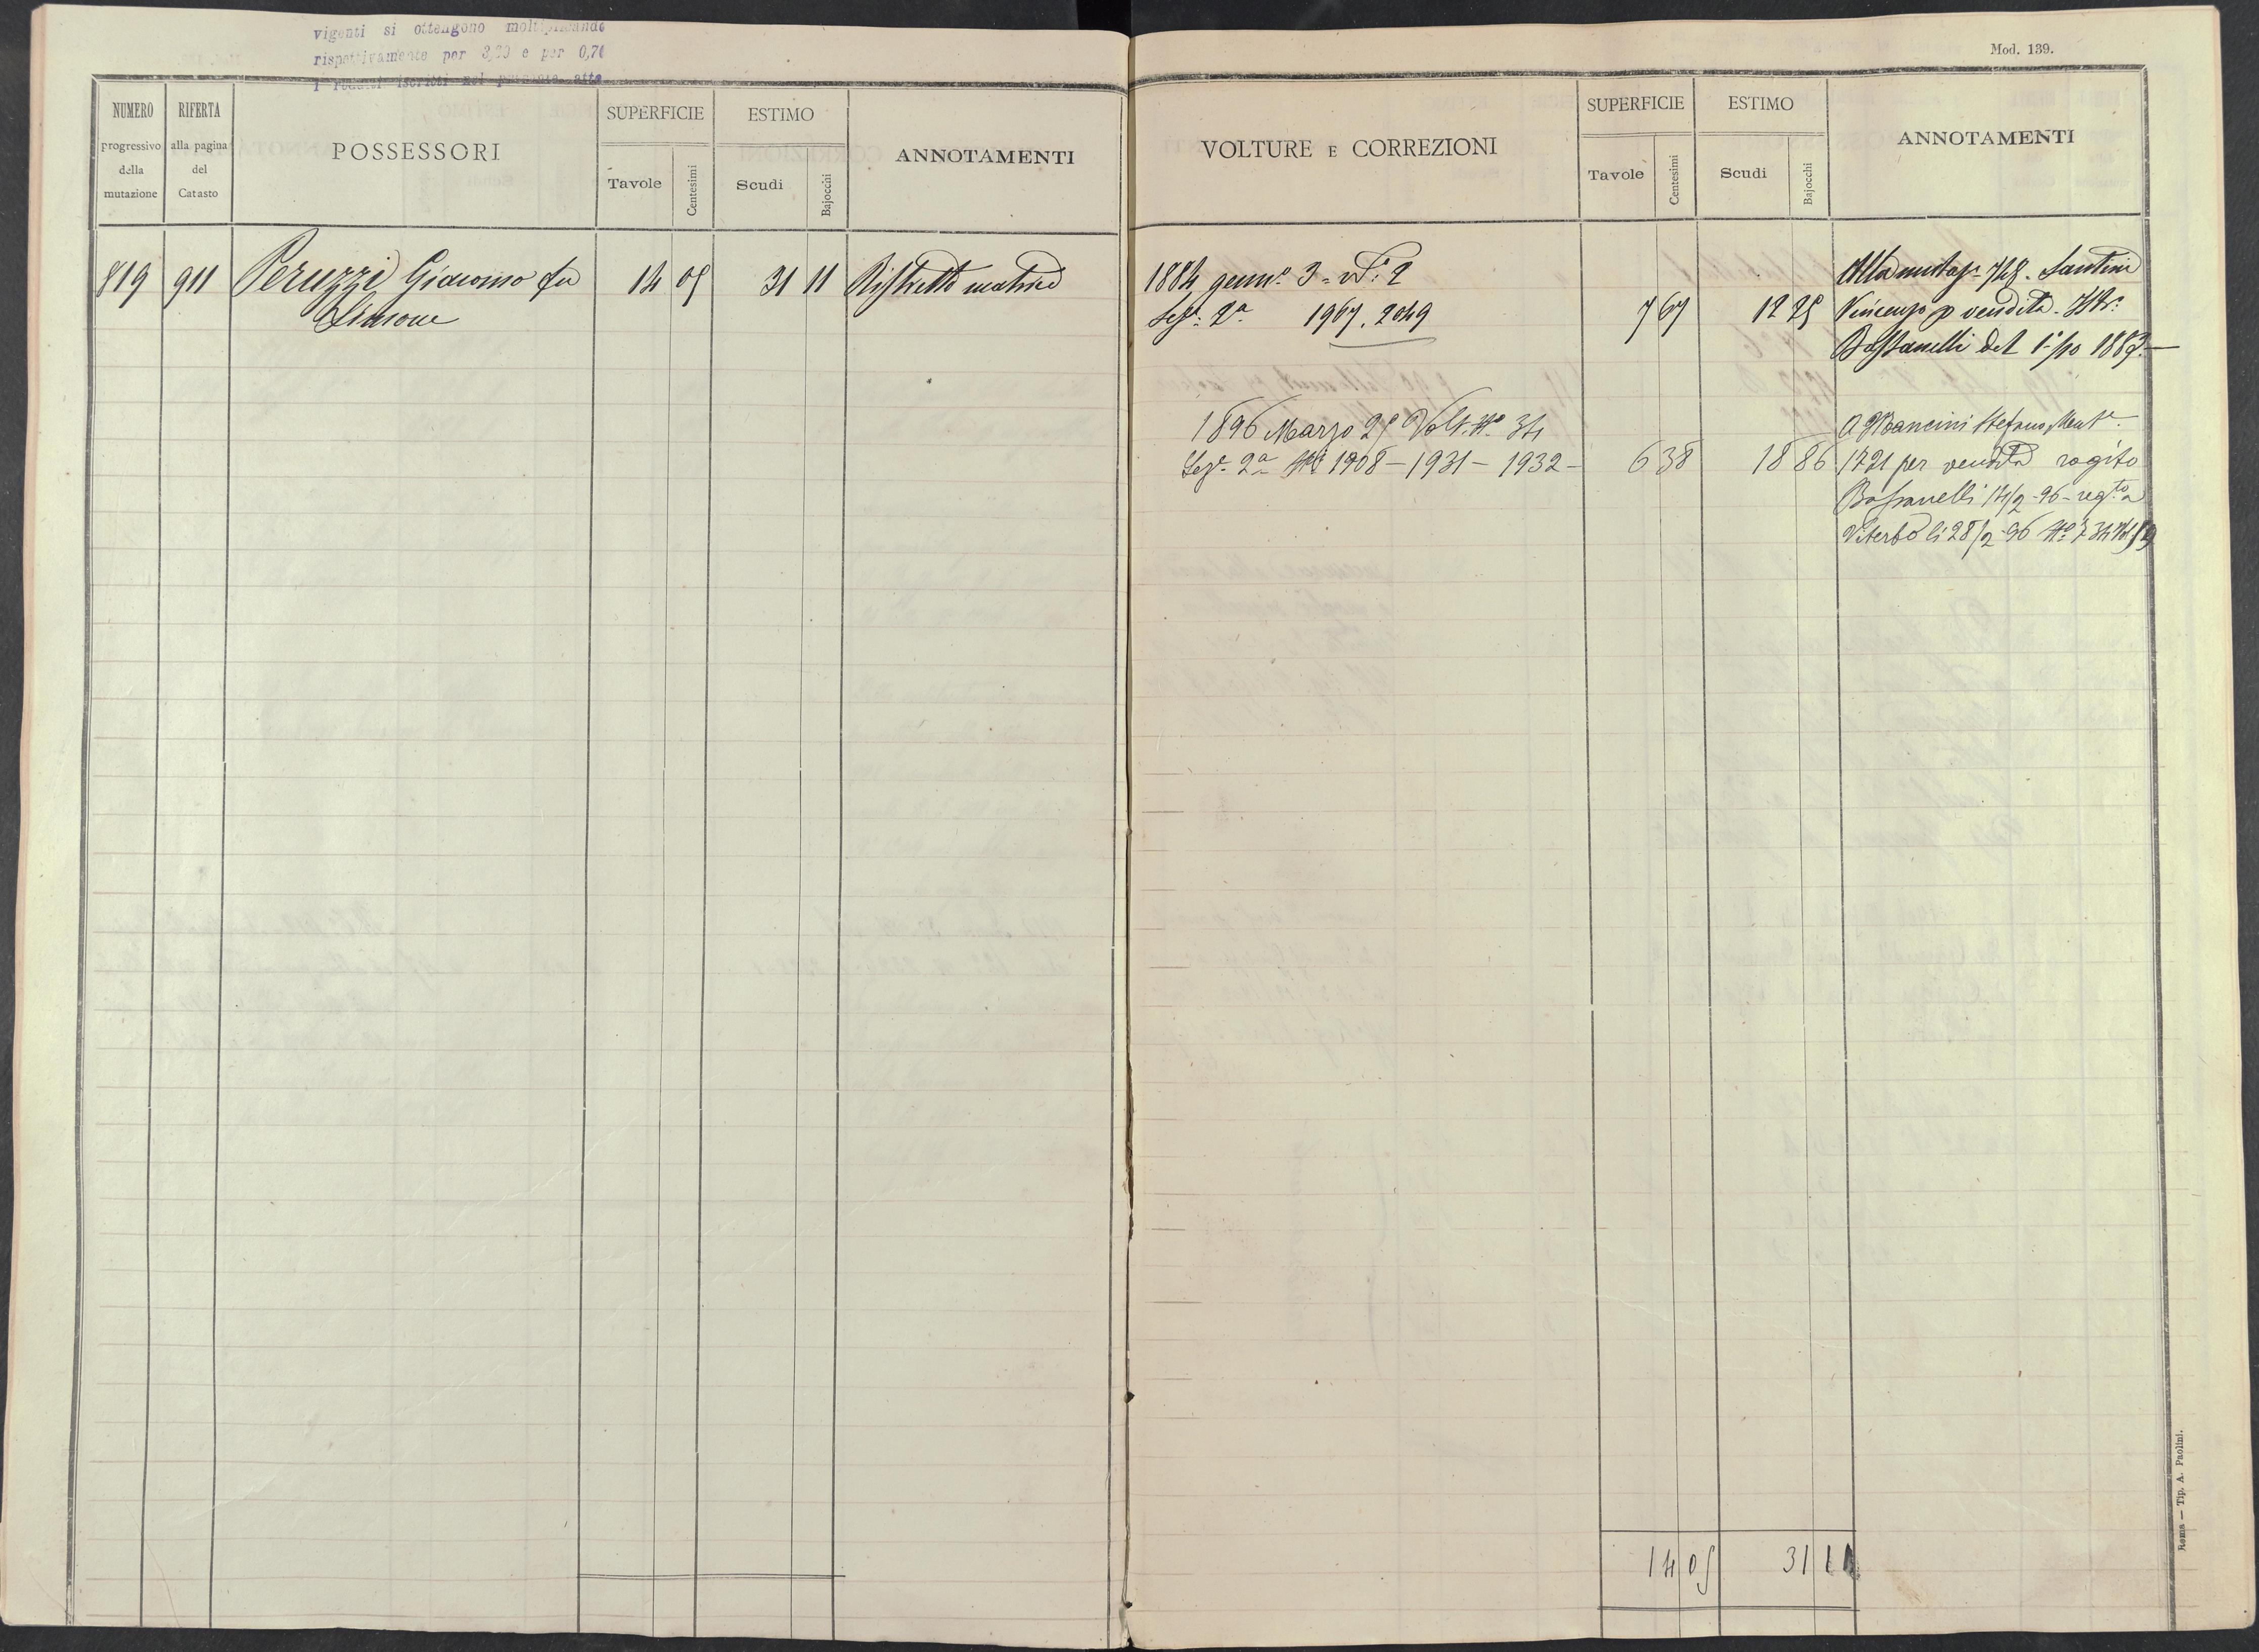 vigenti si ottengono moltiplicando
rispettivamente per 3,20 e per 0,70
Mod. 139.
NUMERO progressivo della mutazione
RIFERTA alla pagina del Catasto
POSSESSORI
SUPERFICIE
Tavole
Centesimi
ESTIMO
Scudi
Bajocchi
ANNOTAMENTI
819 911 Peruzzi Giacomo fu 14 05 31 11 Ristretto matrice
Simone
VOLTURE E CORREZIONI
SUPERFICIE
Tavole
Centesimi
ESTIMO
Scudi
Bajocchi
ANNOTAMENTI
1884 genn.º 3 = V.ª 2 Alla mutaz.e 748. Santini
Sez.e 2a 1967. 2049 7 67 12 25 Vincenzo p vendita. Istr.
Bassanelli del 1º/10 1883.—
1896 Marzo 25 Volt. Nº 34 A Mancini Stefano, Mut.e
Sez.e 2a Ni 1908 — 1931 — 1932 — 6 38 18 86 1721 per vendita rogito
Bassanelli 14/2 - 96 - reg.to a
Viterbo li 28/2 - 96 Nº 734
14 05 31 11
Roma — Tip. A. Paolini.